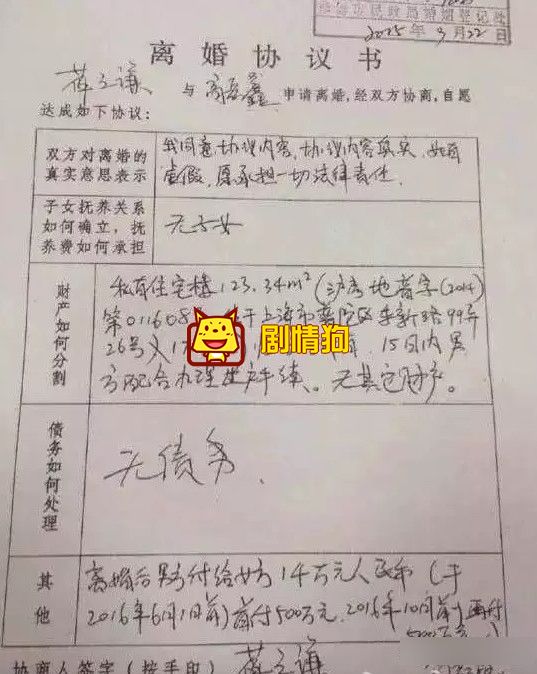 海市民政局婚姻登记处
2025年9月22日
离婚协议书
与 申请离婚,经双方协商,自愿
达成如下协议:
双方对离婚的
真实意思表示
我同意协议内容,协议内容真实,如有
虚假,愿承担一切法律责任.
子女抚养关系
如何确立,抚
养费如何承担
无子女
财产如何分割
私有住宅楼123.34m²(沪房地普字(2014)
第01160 于上海市普陀区 新路99弄
26号 15日内男
方配合办理 手续。无其它财产。
剧情狗
债务如何处理
无债务.
其他
离婚后男方付给女方1千万元人民币(于
2016年6月1日前)首付500万元,2016年10月前 再付
协商人签字(按手印)